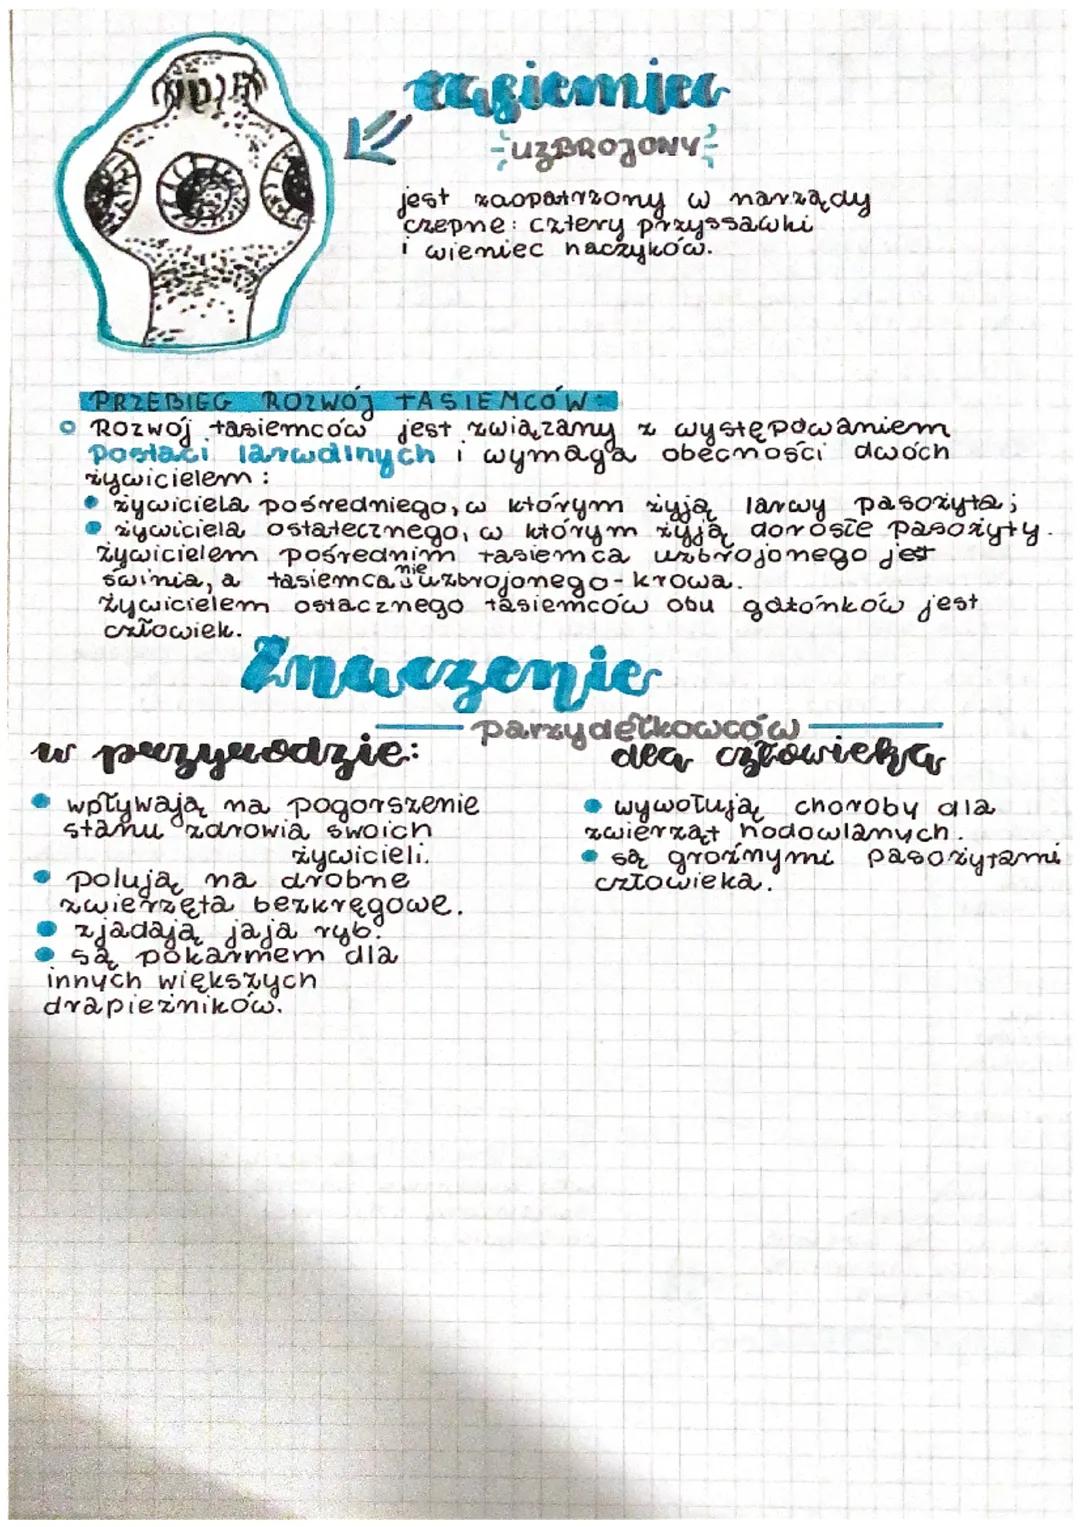 tasiemiec
UZBROJONY
jest zaopatrzony w narządy
czepne: cztery przyssawki
i wieniec haczyków.
PRZEBIEG ROZWÓJ TASIEMCÓW:
Rozwój tasiemców jest związany z występowaniem
postaci larwalnych i wymaga obecności dwóch
żywicielem:
żywiciela pośredniego, w którym żyją larwy pasożyta;
żywiciela ostatecznego, w którym żyją dorosłe pasożyty.
żywicielem pośrednim tasiemca uzbrojonego jest
świnia, a tasiemca nieuzbrojonego - krowa.
Żywicielem ostacznego tasiemców obu gatónków jest
człowiek.
Znaczenie
parzydełkowców
w przyrodzie:
wpływają na pogorszenie
stanu zdrowia swoich
żywicieli.
polują na drobne
zwierzęta bezkręgowe.
zjadają jaja ryb.
są pokarmem dla
innych większych
drapieżników.
dla człowieka
wywołują choroby dla
zwierząt hodowlanych.
są groźnymi pasożytami
człowieka.